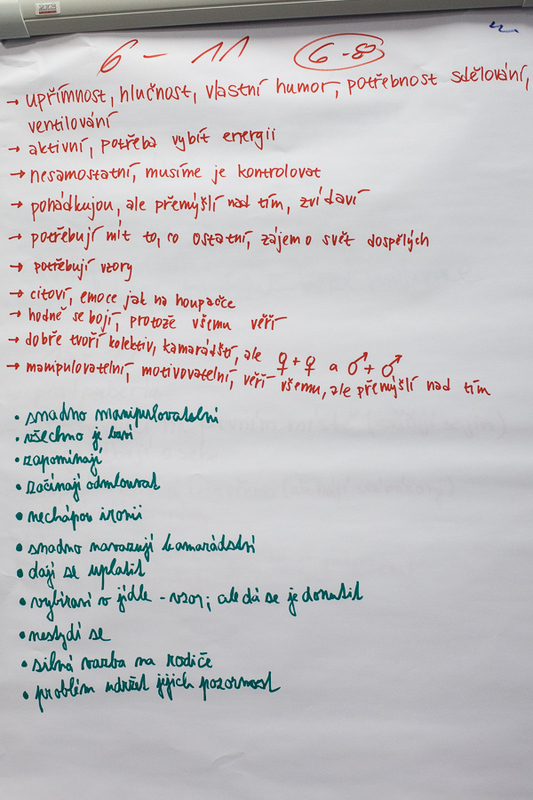 6 - 11
→ upřímnost, hlučnost, vlastní humor, potřebnost sdělování,
ventilování
→ aktivní, potřeba vybít energii
→ nesamostatní, musíme je kontrolovat
→ pohádkujou, ale přemýšlí nad tím, zvídaví
→ potřebují mít to, co ostatní, zájem o svět dospělých
→ potřebují vzory
→ citoví, emoce jak na houpačce
→ hodně se bojí, protože všemu věří
→ dobře tvoří kolektiv, kamarádští, ale ♀ + ♀ a ♂ + ♂
→ manipulovatelní, motivovatelní, věří všemu, ale přemýšlí nad tím
• snadno manipulovatelní
• všechno je baví
• zapomínají
• začínají odmlouvat
• nechápou ironii
• snadno navazují kamarádství
• dají se uplatit
• vybíraví v jídle - vzor; ale dá se je donutit
• nestydí se
• silná vazba na rodiče
• problém udržet jejich pozornost